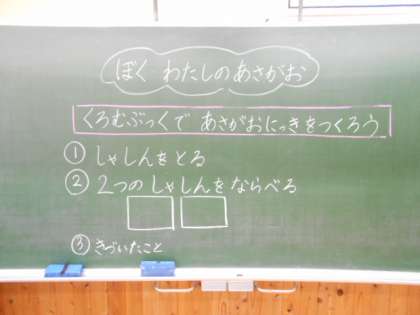 ぼく わたしのあさがお
くろむぶっくで あさがおにっきをつくろう
① しゃしんをとる
② 2つのしゃしんをならべる
③ きづいたこと